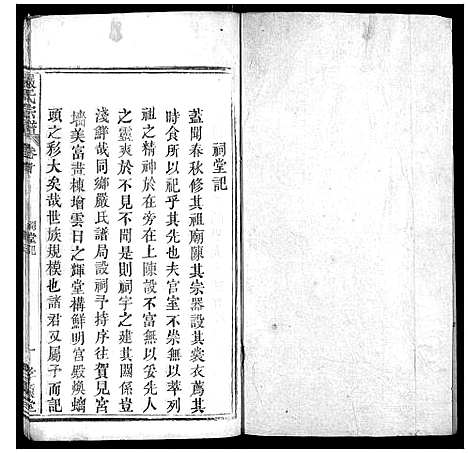 祠堂記
蓋聞春秋修其祖廟陳其宗器設其裳衣薦其
時食所以祀乎其先也夫宮室不崇無以萃列
祖之精神於在旁在上陳設不富無以妥先人
之靈爽於不見不聞是則祠宇之建其關係豈
淺鮮哉同鄉嚴氏譜局設祠予持序往賀見宮
墻美富畫棟增雲日之輝堂構鮮明宮殿煥螭
頭之彩大矣哉世族規模也諸君又屬予而記
嚴氏宗譜
卷首
祠堂記
一
堂